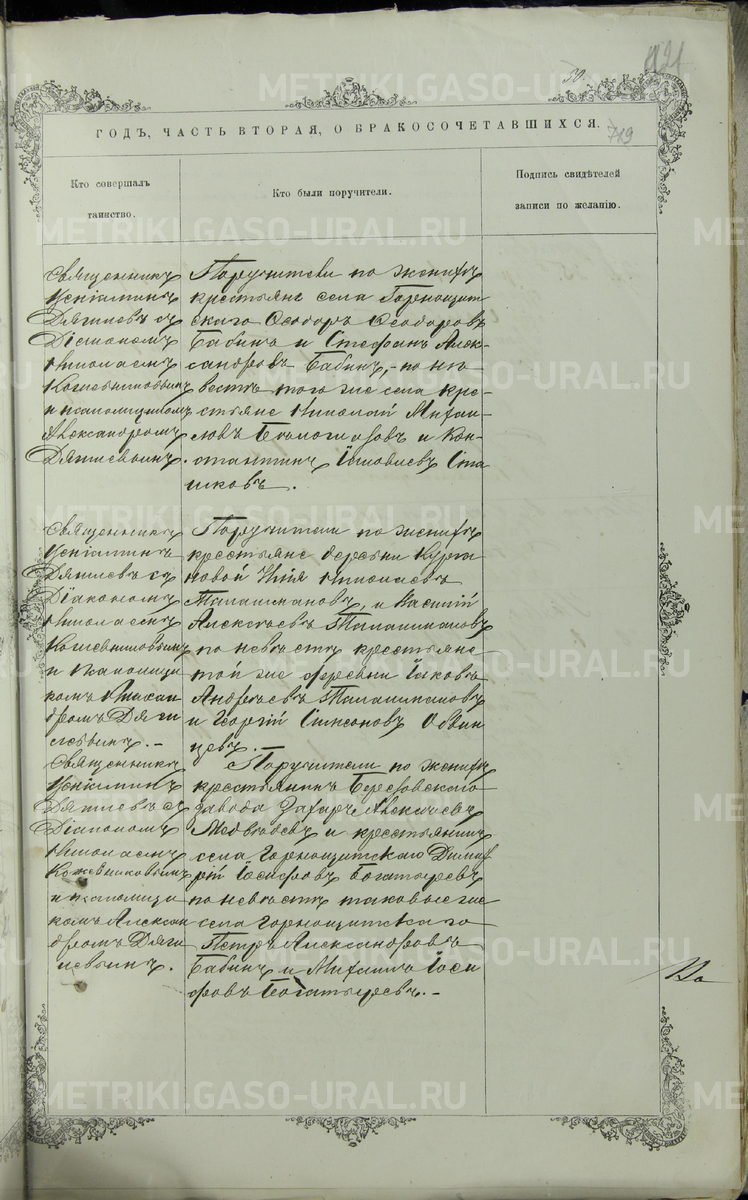 50.
719
ГОДЪ, ЧАСТЬ ВТОРАЯ, О БРАКОСОЧЕТАВШИХСЯ.
Кто совершалъ
таинство.
Кто были поручители.
Подпись свидѣтелей
записи по желанію.
Священникъ
Дягилевъ съ
Діакономъ
Николаемъ
Кожевниковымъ
и псаломщикомъ
Александромъ
Дягилевымъ.
Поручители по женихѣ
крестьяне села Горнощит-
скаго Ѳеодоръ Ѳеодоровъ
Бабинъ и Стефанъ Алек-
сандровъ Бабинъ, - по не-
вестѣ того же села кре-
стьяне Николай Михаи-
ловъ Бѣлоглазовъ и Кон-
стантинъ Іаковлевъ Ста
шковъ.
Священникъ
Дягилевъ съ
Діакономъ
Николаемъ
Кожевниковымъ
и псаломщи
комъ Алексан
дромъ Дяги
левымъ. -
Поручители по женихѣ
крестьяне деревни Курга
новой Илія Николаевъ
Талашмановъ, и Василій
Алексѣевъ Талашмановъ
по невѣстѣ крестьяне
той же деревни Іаковъ
Андреевъ Талашмановъ
и Георгій Симеоновъ Обвин
цевъ.
Священникъ
Дягилевъ съ
Діакономъ
Николаемъ
Кожевниковымъ
и псаломщи
комъ Алексан
дромъ Дяги
левымъ.
Поручители по женихѣ
крестьянинъ Березовскаго
завода Захаръ Алексѣевъ
Медвѣдевъ и крестьянинъ
села Горнощитскаго Димит
рій Іосифовъ Богатыревъ
по невѣстѣ таковые же
села Горнощитскаго
Петръ Александровъ
Бабинъ и Михаилъ Іоси
фовъ Богатыревъ. -
METRIKI.GASO-URAL.RU